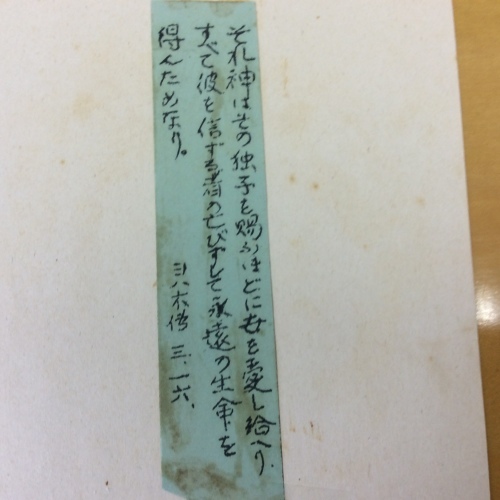 それ神はその独子を賜ふほどに世を愛し給へり、
すべて彼を信ずる者の亡びずして永遠の生命を
得んためなり。
ヨハネ傳 三、一六、